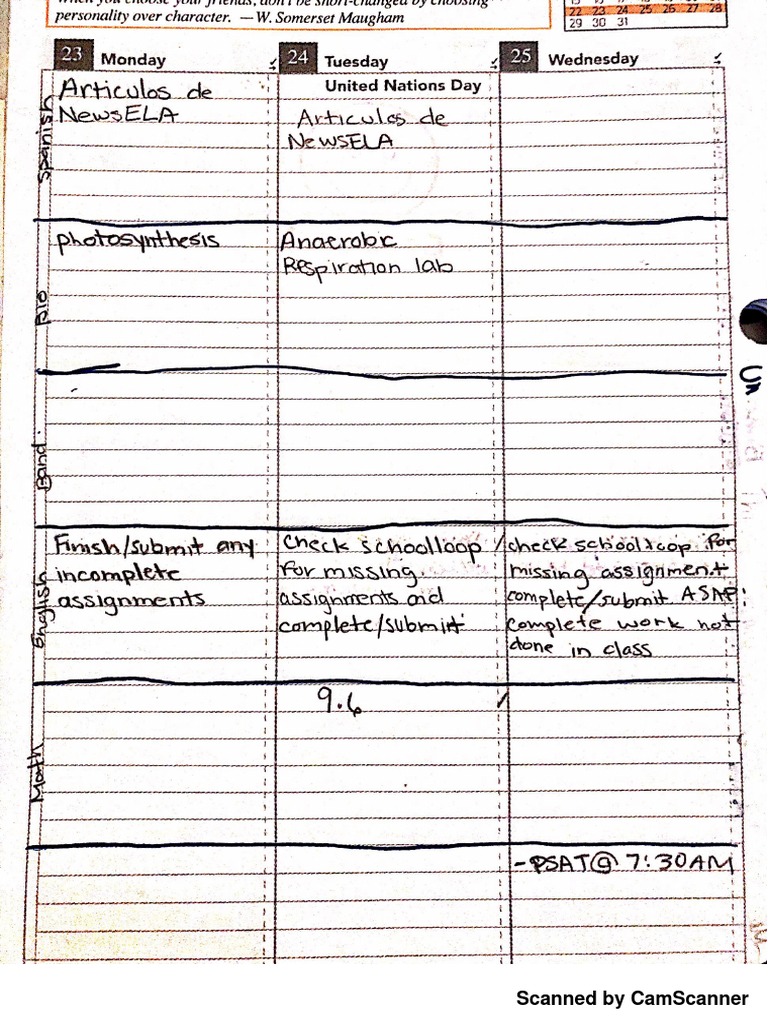 personality over character. —W. Somerset Maugham
22 23 24 25 26 27 28
29 30 31
23 Monday
24 Tuesday
25 Wednesday
United Nations Day
Spanish
Articulos de
NewsELA
Articulos de
NewsELA
Bio
photosynthesis
Anaerobic
Respiration lab
Band
English
Finish/submit any
incomplete
assignments
Check schoolloop
for missing
assignments and
complete/submit
check schoolloop for
missing assignment
complete/submit ASAP.
complete work not
done in class
Math
9.6
-PSAT@ 7:30AM
Scanned by CamScanner